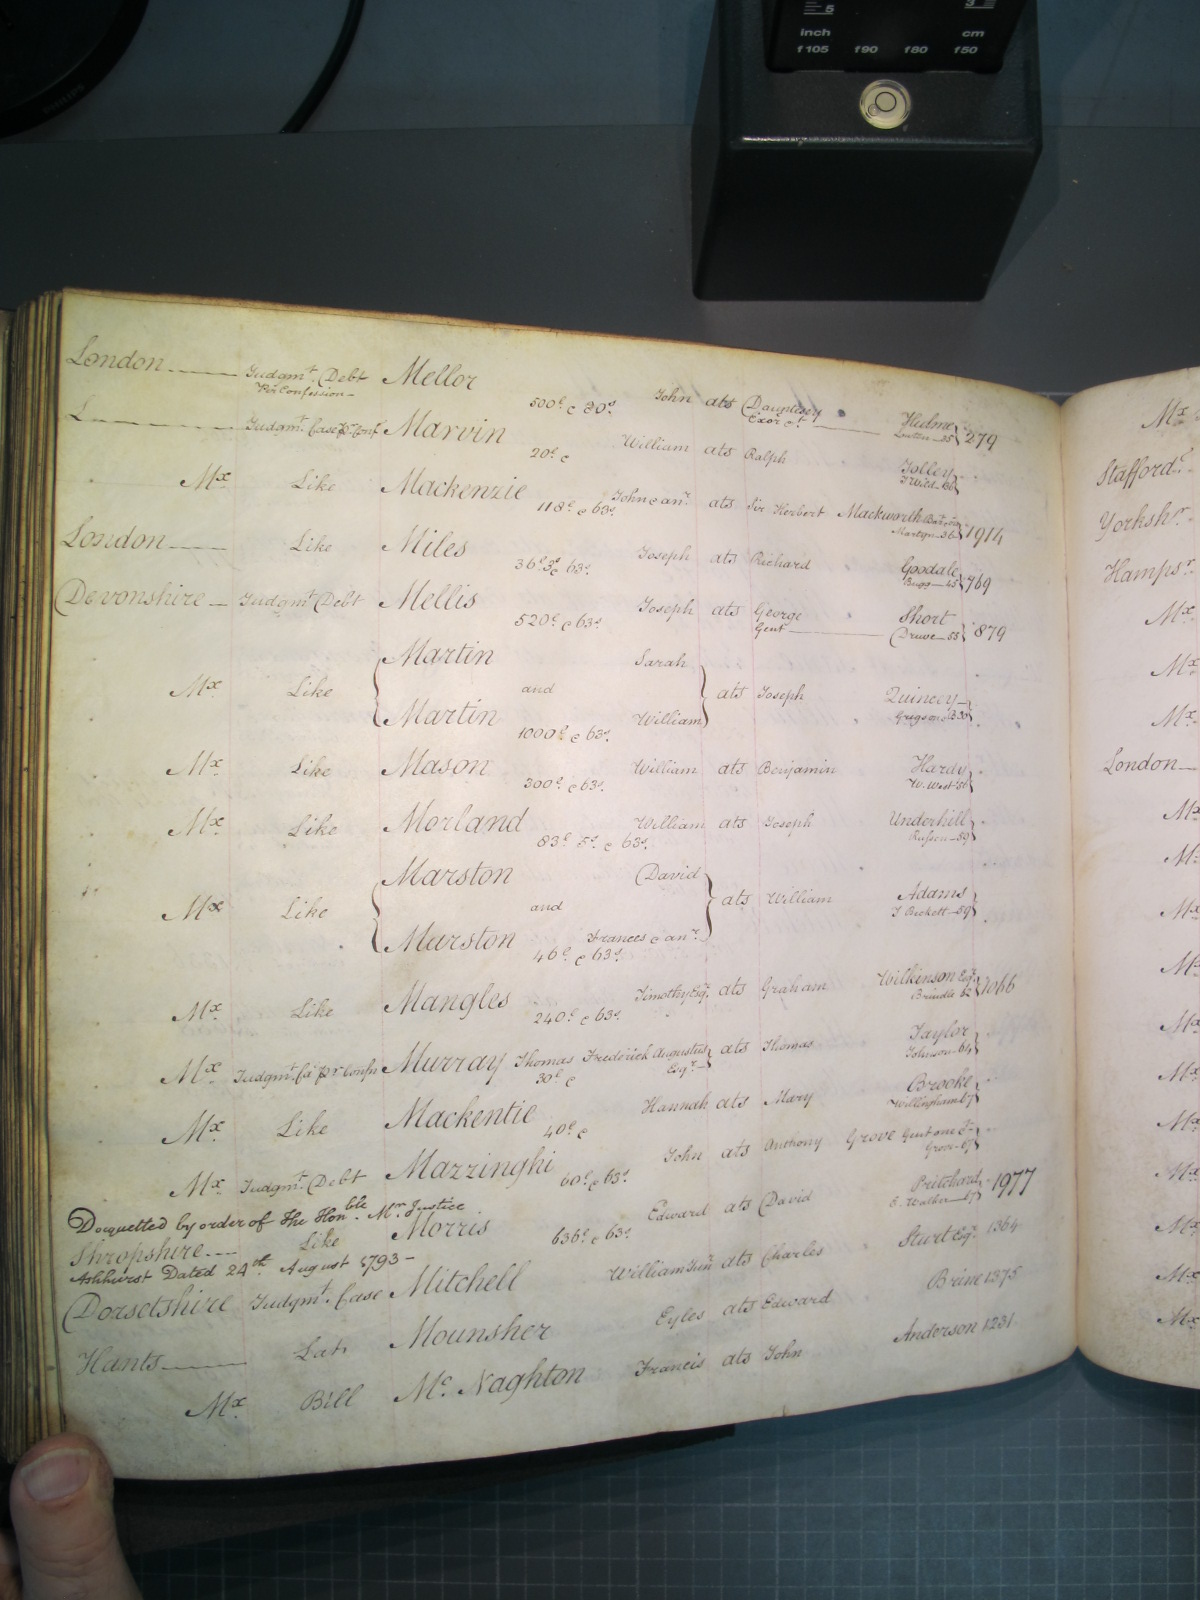 5 3
inch cm
f105 f90 f80 f50
PHILIPS
London Judgmt. Debt Mellor 500£ & 80s John ats Dauntesey Hulme 279
Per Confession Exor &c. Lutten 25
L Judgmt. Case pr. Conf Marvin 20£ & William ats Ralph Tolley
T Wild 60
Mx Like Mackenzie 118£ & 63s. John & anr. ats Sir Herbert Mackworth Baronet 1914
Martyn 36
London Like Miles 36£ 3s & 63s. Joseph ats Richard Goodale 769
Bugg 45
Devonshire Judgmt Debt Mellis 520£ & 63s. Joseph ats George Short 879
Gent Druve 55
Martin Sarah
Mx Like and ats Joseph Quincey
Martin 1000£ & 63s. William Grigson
Mx Like Mason 300£ & 63s. William ats Benjamin Hardy
W. West 56
Mx Like Morland 83£ 5s. & 63s. William ats Joseph Underhill
Russon 59
Marston David
Mx Like and ats William Adams
Marston 46£ & 63s. Frances & anr. T Beckett 59
Mx Like Mangles 240£ & 63s. Timothy Esqr. ats Graham Wilkinson Esqr. 1066
Brindle 62
Mx Judgmt. Ca pr Confn Murray Thomas Frederick Augustus ats Thomas Taylor
30£ & Esqr. Johnson 64
Mx Like Mackentie 40£ & Hannah ats Mary Brooke
Willingham 67
Mx Judgmt. Debt Mazzinghi 60£ & 63s. John ats Anthony Grove Gent one &c
Grove 67
Docquetted by order of The Honble. Mr. Justice
Shropshire Like Morris 636£ & 63s. Edward ats David Pritchard 1977
Ashhurst Dated 24th. August 1793 - E. Walker 67
Dorsetshire Judgmt. Case Mitchell William Junr ats Charles Sturt Esqr. 1364
Hants Lat. Mounsher Eyles ats Edward Brine 1375
Mx. Bill Mc. Naghton Francis ats John Anderson 1231
Mx
Staffordr.
Yorkshr.
Hampsr.
Mx
Mx
Mx
London
Mx
Mx
Mx
Mx
Mx
Mx
Mx
Mx
Mx
Mx
Mx